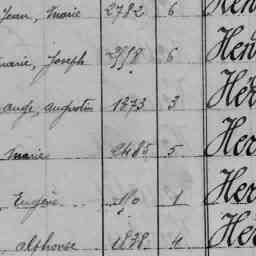 Jean, Marie 2782 6 Hen
Marie, Joseph 2558 6 Hen
ange, augustin 1873 3 Her
Marie 2485 5 Her
Eugène 1 Her
alphonse 1878 4 Her